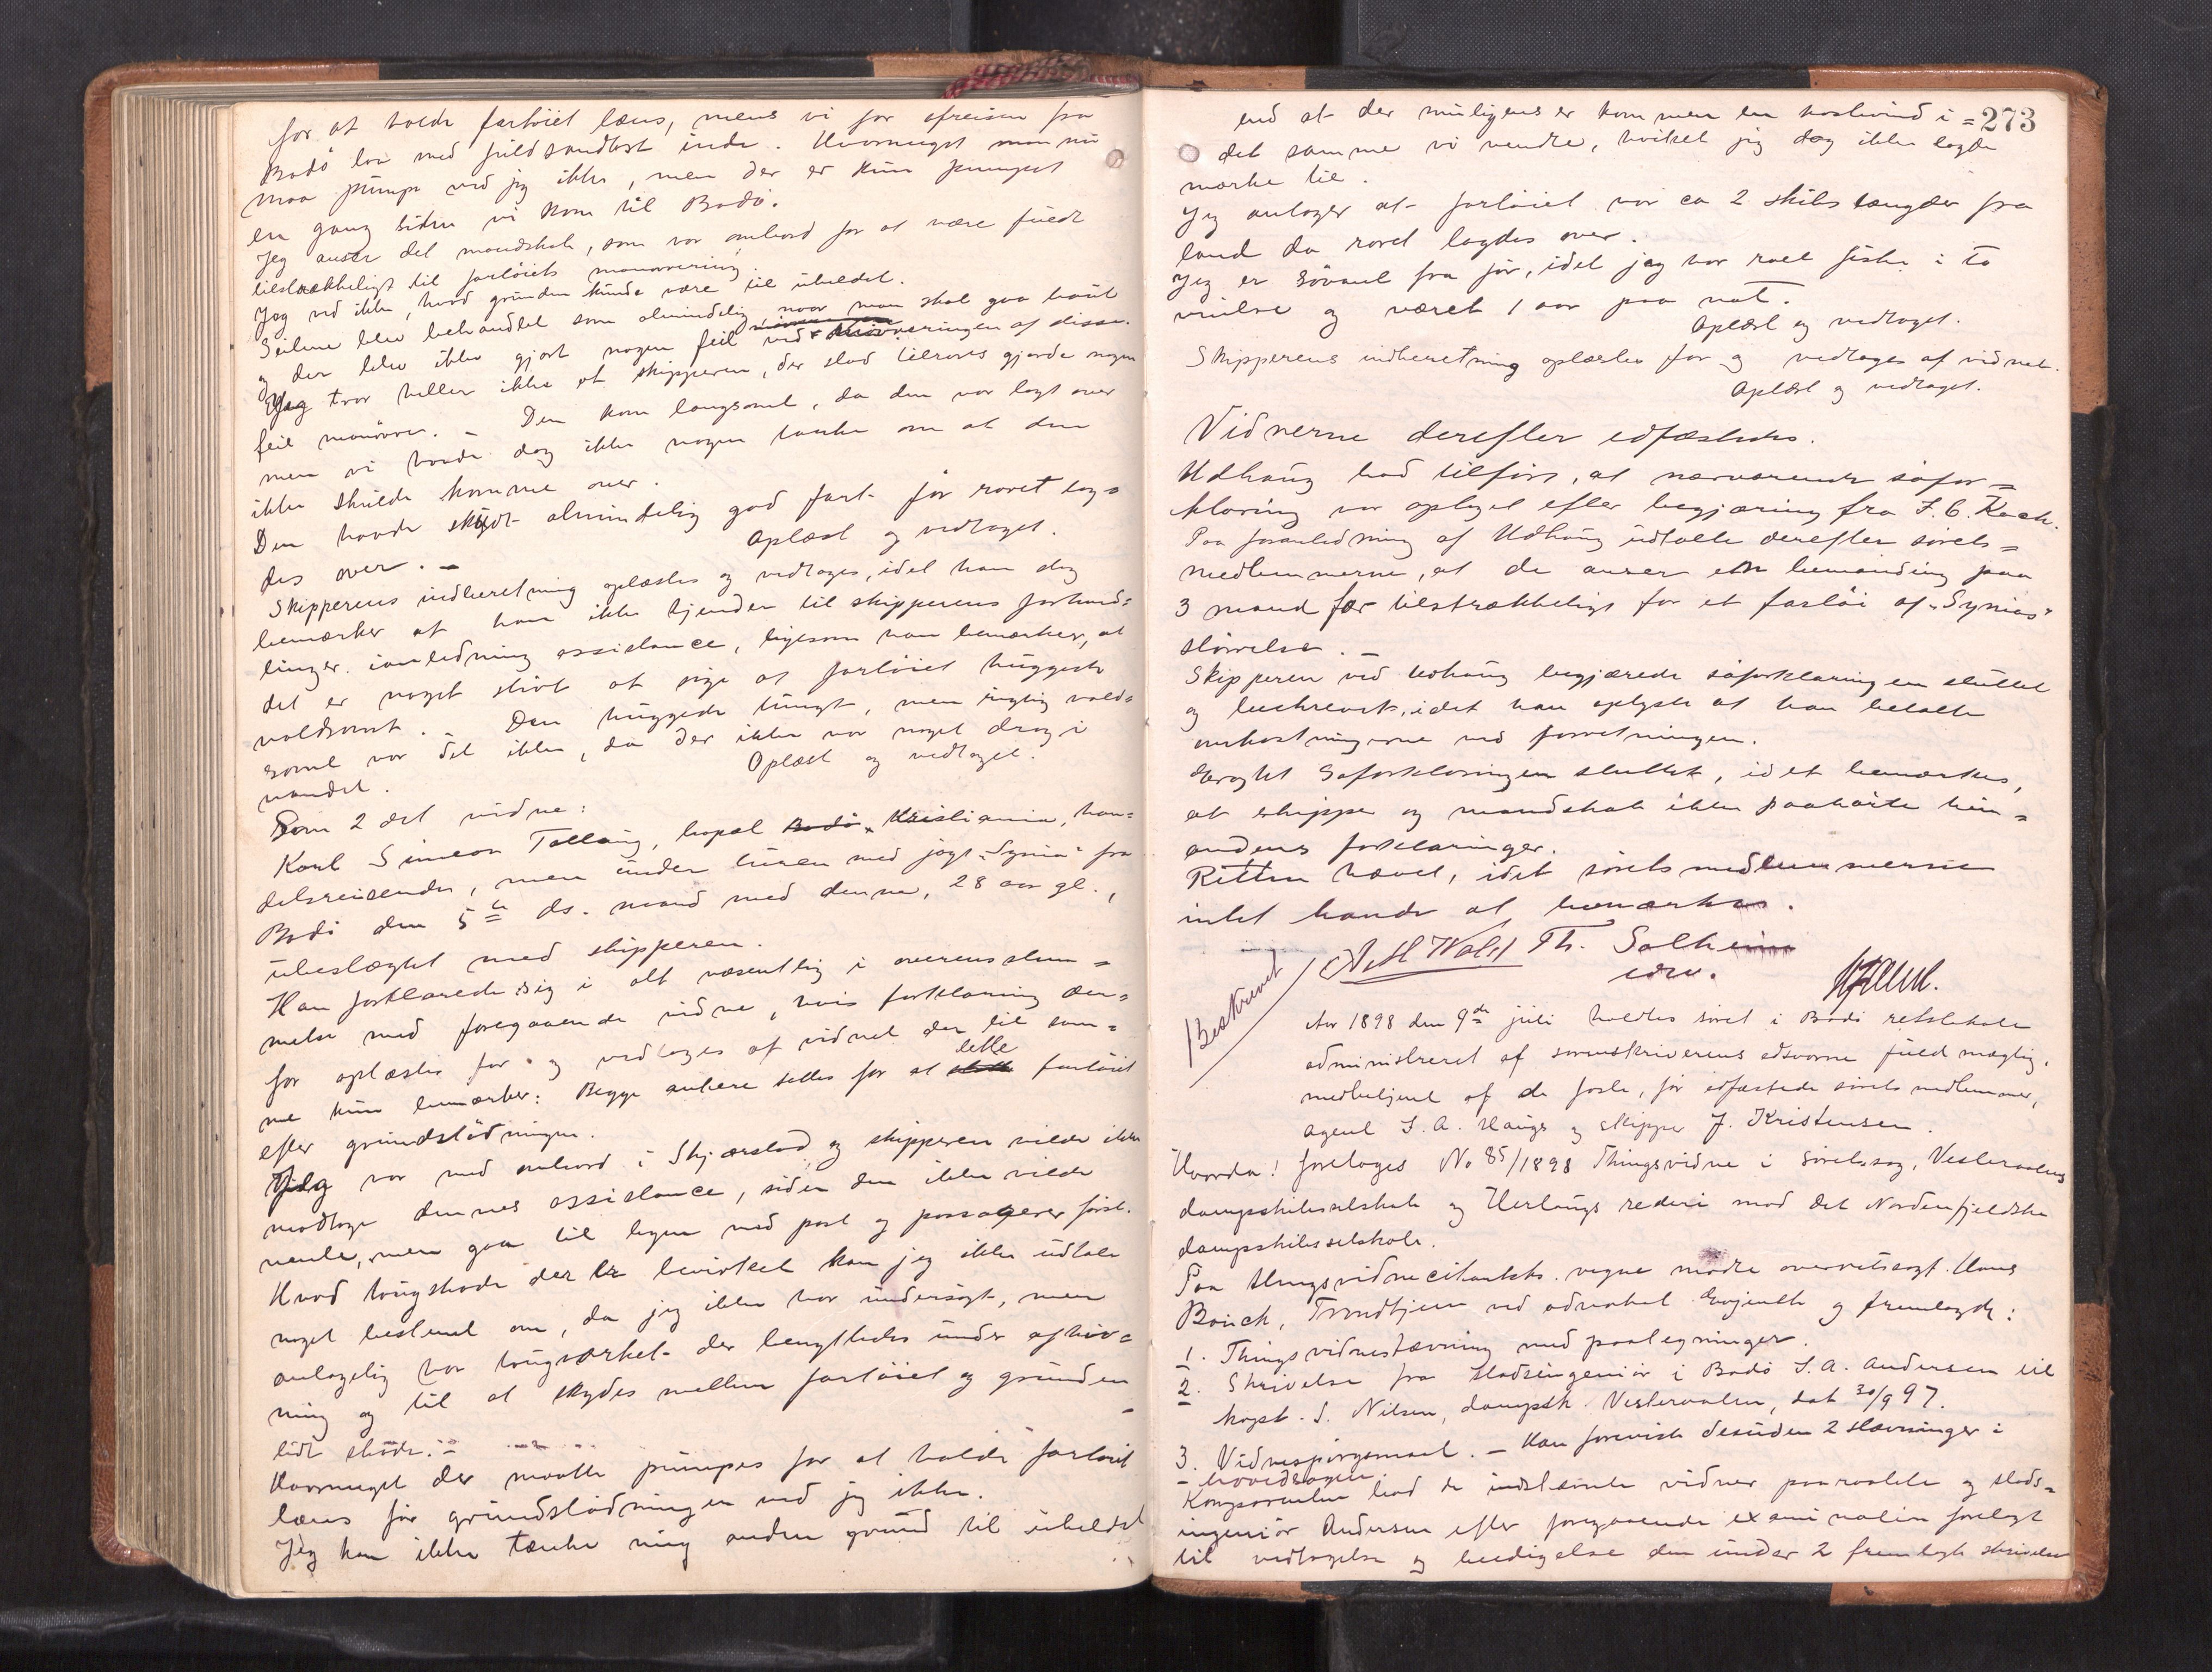 for at holde fartöiet læns, mens vi för afreisen fra
Bodö laa med fuld sandlast inde. Hvormeget man nu
maa pumpe ved jeg ikke, men der er kun pumpet
en gang siden vi kom til Bodö.
Jeg anser det mandskab, som var ombord for at være fuldt
tilstrækkeligt til fartöiets manövrering.
Jeg ved ikke, hvad grunden kunde være til uheldet.
Seilene blev behandlet som almindelig naar man skal gaa baut
og der blev ikke gjort nogen feil ved manövreringen af disse.
Jeg tror heller ikke at skipperen, der stod tilrors gjorde nogen
feil manövre. – Den kom langsomt, da den var lagt over
men vi havde dog ikke nogen tanke om at den
ikke skulde komme over.
Den havde skudt almindelig god fart för roret lag=
des over. – Oplæst og vedtaget.
Skipperens indberetning oplæstes og vedtages, idet han dog
bemærker at han ikke kjender til skipperens forhand=
linger ianledning assistance, ligesom han bemærker, at
det er noget stivt at sige at fartöiet huggede
voldsomt. – Den huggede tungt, men rigtig vold=
somt var det ikke, da der ikke var noget drag i
vandet. Oplæst og vedtaget.
Som 2det vidne:
Karl Simeon Tollaug, bopæl Bodö Kristiania, han=
delsreisende, men under turen med jagt „Synia" fra
Bodö den 5te ds. mand med denne, 28 aar gl.,
ubeslægtet med skipperen.
Han forklarede sig i alt væsentlig i overensstem=
melse med foregaaende vidne, hvis forklaring der=
for oplæstes for og vedtages af vidnet der til sam=
me kun bemærker: Begge ankere sattes for at lette fartöiet
efter grundstödningen.
Jeg var med ombord i Skjærstad og skipperen vilde ikke
modtage dennes assistance, siden den ikke vilde
vente, men gaa til byen med post og passagerer först.
Hvad taugskade der er bevirket kan jeg ikke udtale
noget bestemt om, da jeg ikke har undersögt, men
antagelig har taugværket der benyttedes under afhiv=
ning og til at skydes mellem fartöiet og grunden
lidt skade. –
Hvormeget der maatte pumpes for at holde fartöiet
læns för grundstödningen ved jeg ikke.
Jeg kan ikke tænke mig anden grund til uheldet
273
end at der muligens er kommen en kastevind i =
det samme vi vendte, hvilket jeg dog ikke lagde
mærke til.
Jeg antager at fartöiet var ca 2 skibslængder fra
land da roret lagdes over.
Jeg er sövant fra för, idet jeg har roet fiske i to
vintre og været 1 aar paa not.
Oplæst og vedtaget.
Skipperens indberetning oplæstes for og vedtages af vidnet.
Oplæst og vedtaget.
Vidnerne derefter edfæstedes.
Udhaug bad tilfört, at nærværende söfor=
klaring var optaget efter begjæring fra F. C. Koch.
Paa foranledning af Udhaug udtalte derefter sörets=
medlemmerne, at de anser en bemanding paa
3 mand for tilstrækkeligt for et fartöi af „Synias"
störrelse. –
Skipperen ved Udhaug begjærede söforklaringen sluttet
og beskrevet, idet han oplyste at han betalte
omkostningerne ved forretningen.
Eragtet Söforklaringen sluttet, idet bemærkes,
at skipper og mandskab ikke paahörte hin=
andens forklaringer.
Retten hævet, idet söretsmedlemmerne
intet havde at bemærke.
Th. Solheim
edsv.
Beskrevet
Aar 1898 den 9de juli holdtes söret i Bodö retslokale
administreret af sorenskriverens edsvorne fuldmægtig,
medbetjent af de faste, för edfæstede söretsmedlemmer,
agent S. A. Hauge og skipper J. Kristensen.
Hvorda! foretoges No 85/1898 Thingsvidne i söretssag, Vesteraalens
dampskibsselskab og Herlaugs rederi mod det Nordenfjeldske
dampskibsselskab.
Paa thingsvidnecitantets vegne mödte overretssagf. Hans
Bauck, Trondhjem ved advokat Engjeult og fremlagde:
1. Thingsvidnestævning med paategninger.
2. Skrivelse fra Stadsingeniör i Bodö S. A. Andersen til
kapt. S. Nilsen, dampsk. Vesteraalen, dat 30/9 97.
3. Vidnespörgsmaal. – Han foreviste desuden 2 stævninger i
hovedsagen.
Komparenten bad de indstævnte vidner paaraabte og stads=
ingeniör Andersen efter foregaaende examination forelagt
til vedtagelse og beedigelse den under 2 fremlagte skrivelse